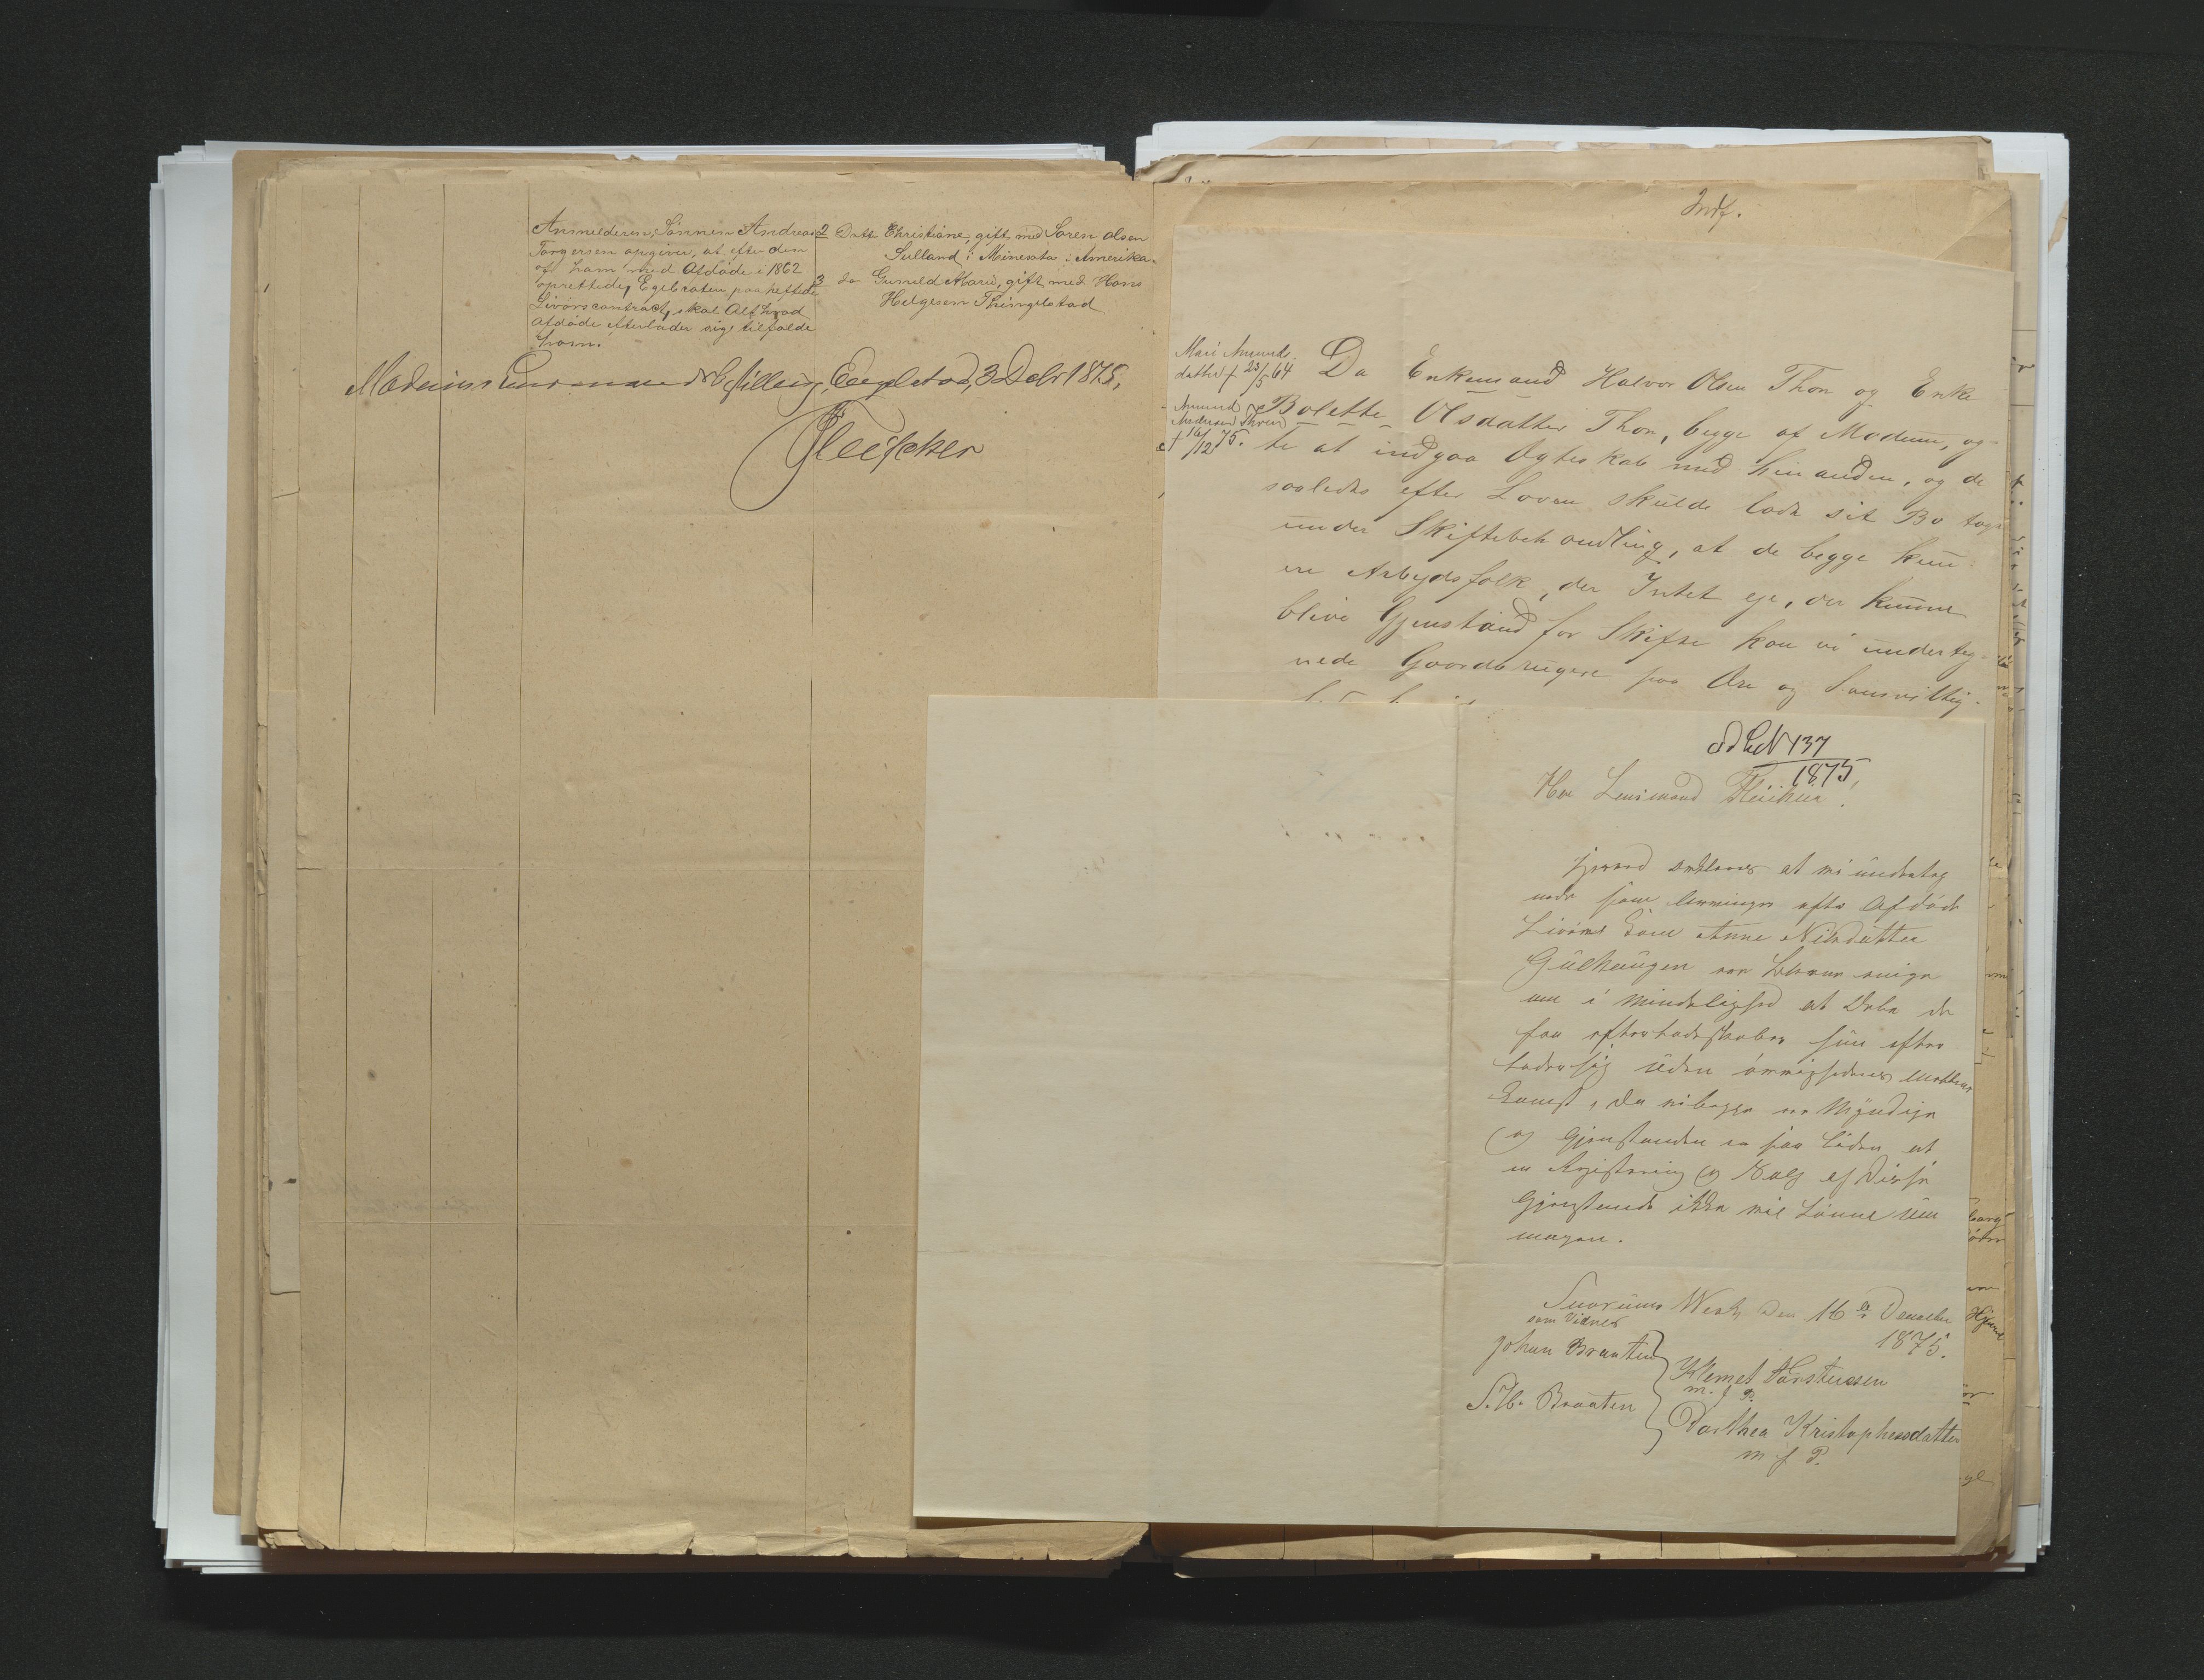 Anmelderen, Sønnen Andreas
Torgersen opgiver, at efter den
af ham med Afdøde i 1862
oprettede, Egebraten paaheftede
Livørscontract, skal Alt hvad
Afdøde efterlader sig, tilfalde
ham.
2 Datter Christiane, gift med Søren Olsen
Sulland i Minesota i Amerika.
3 do Gunild Marie, gift med Hans
Helgesen Thingelstad
Modums Lensmandsbestilling, 3 Decbr 1875,
Fleischer
Indf.
Mari Amunds
datter † 23/5 64
Amund
Andersen Thon
† 16/12 75.
Da Enkemand Halvor Olsen Thon og Enke
Bolette Olsdatter Thon, begge af Modum, ag-
te at indgaa Ægteskab med hinanden, og de
saaledes efter Loven skulde lade sit Bo tage
under Skiftebehandling, at de begge kun
ere Arbejdsfolk, der Intet eje, der kunne
blive Gjenstand for Skifte kan vi underteg-
nede Gaardbrugere paa Ære og Samvittig-
No 137
1875,
Her Lensmand Fleischer.
hjermed erklæres at vi underteg
nede som Arvinger efter Afdøde
Livørs Kone Anne Nilsdatter
Gulhaugen er bleven enige
om i Mindelighed at Dele de
faa efterladenskaber hun efter
lader sig uden øvrighedens mellem
komst, da vi begge er Myndige
og Gjenstanden er saa liden at
en Registrering og Salg af Disse
Gjenstande ikke vil Lønne um
magen.
Snarums Værk den 16de December
1875.
som Vidner
Johan Braaten
S. H. Braaten
Klemet Torstensen
m. f. P.
Dorthea Kristophersdatter
m f P.